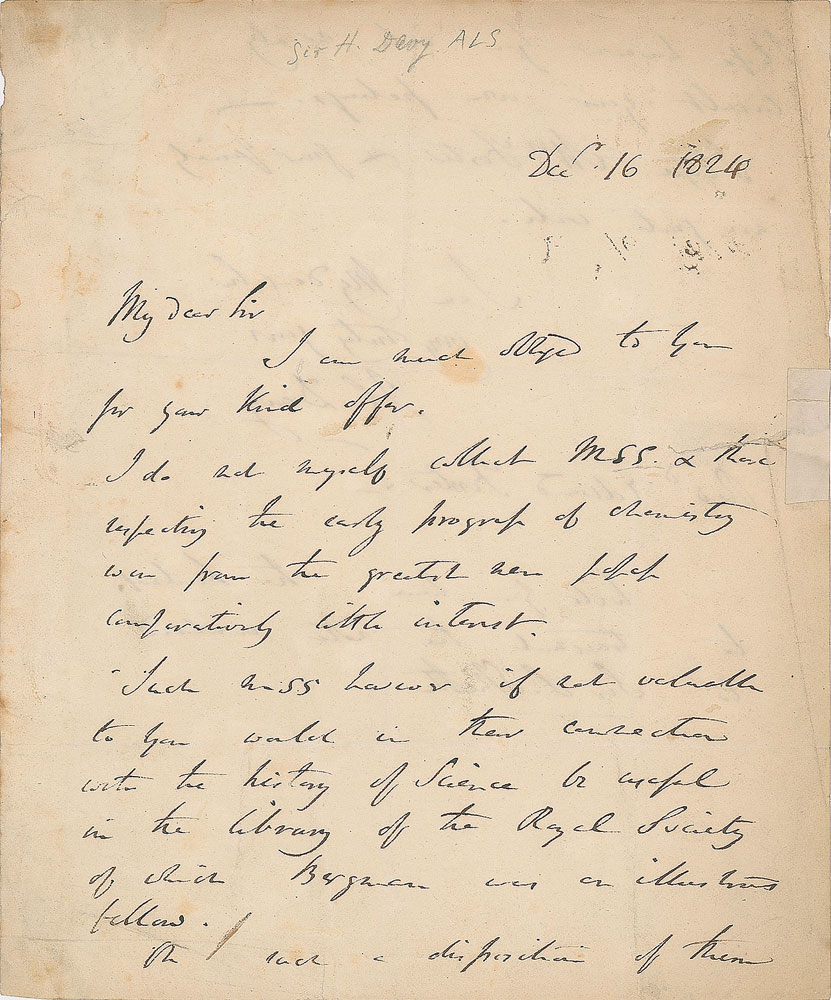 Sir H. Davy ALS
Decr. 16 1824
My dear Sir
I am much obliged to you
for your kind offer.
I do not myself collect MSS. & those
respecting the early progress of chemistry
even from the greatest men possess
comparatively little interest.
Such MSS however if not valuable
to you would in their connection
with the history of Science be useful
in the library of the Royal Society
of which Bergman was an illustrious
fellow.
such a disposition of them